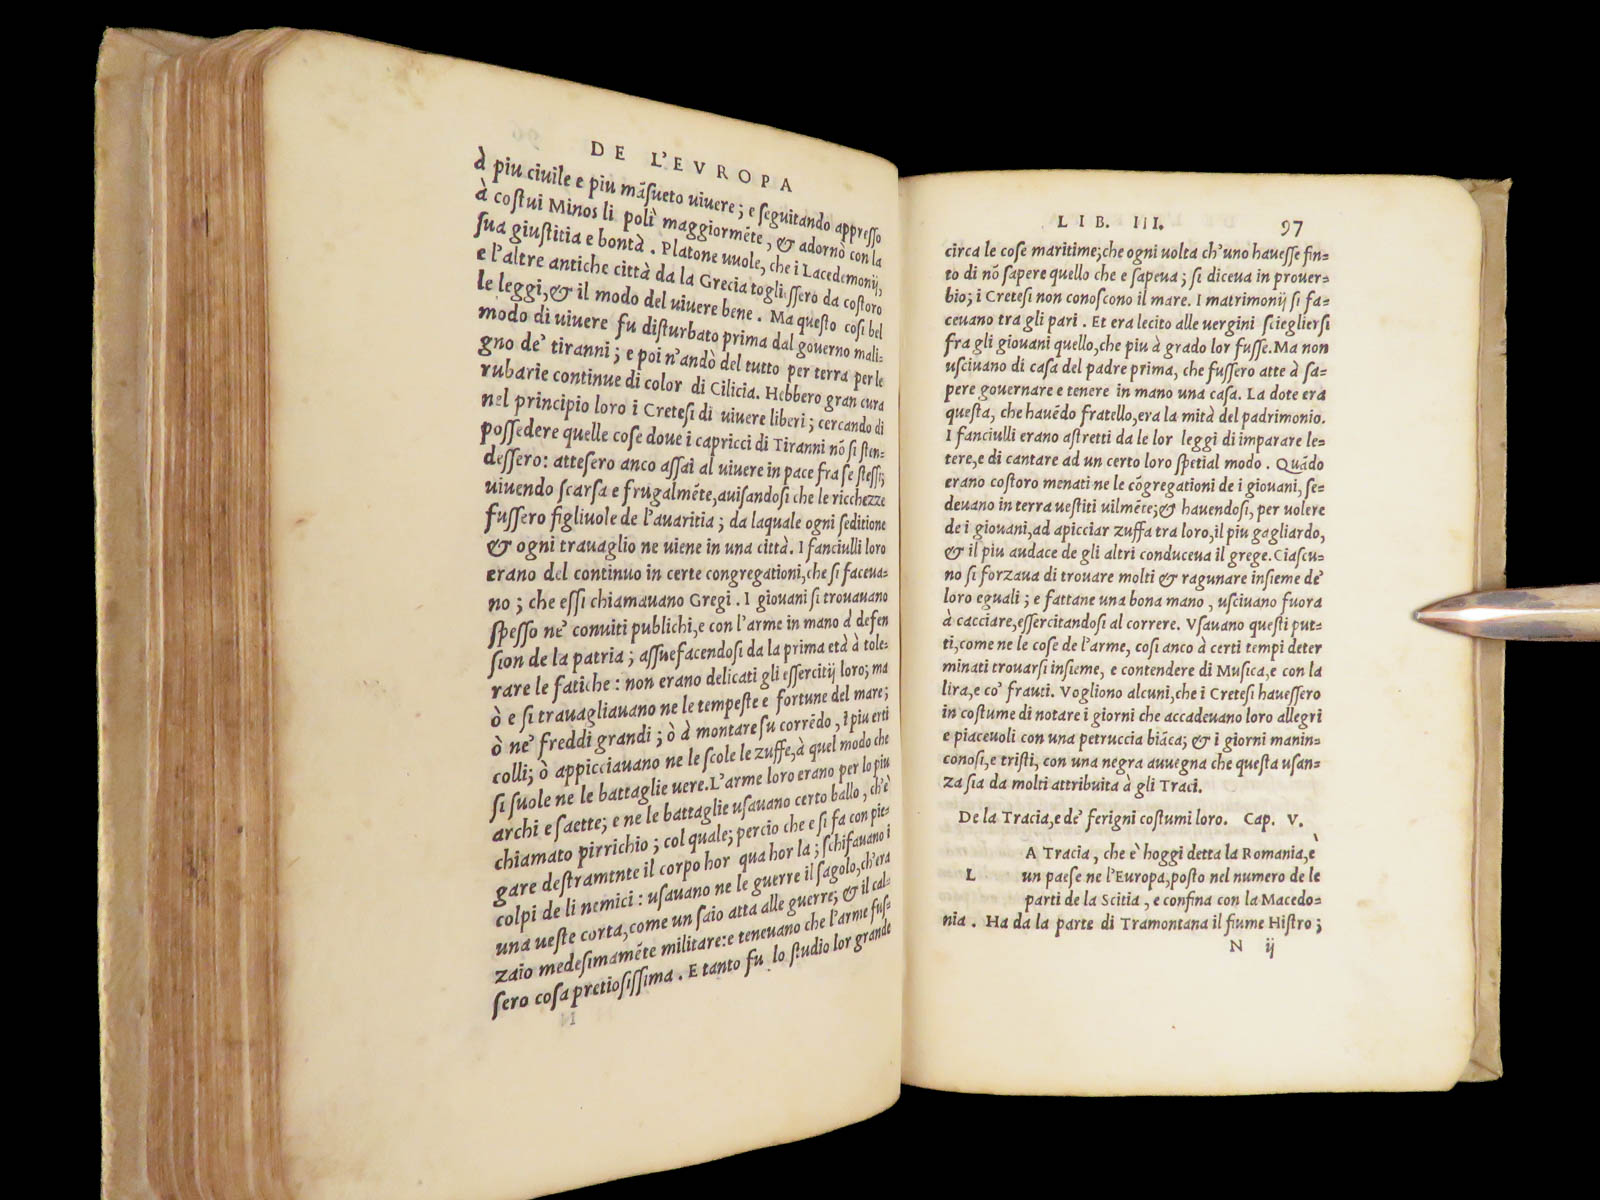 DE L'EVROPA
à piu ciuile e piu mãsueto uiuere; e seguitando appresso
à costui Minos li polì maggiormẽte, & adornò con la
sua giustitia e bontà. Platone uuole, che i Lacedemonij,
e l'altre antiche città da la Grecia togliessero da costoro
le leggi, & il modo del uiuere bene. Ma questo cosi bel
modo di uiuere fu disturbato prima dal gouerno mali-
gno de' tiranni; e poi n'andò del tutto per terra per le
rubarie continue di color di Cilicia. Hebbero gran cura
nel principio loro i Cretesi di uiuere liberi; cercando di
possedere quelle cose doue i capricci di Tiranni nõ si sten-
dessero: attesero anco assai al uiuere in pace fra se stessi;
uiuendo scarsa e frugalmẽte, auisandosi che le ricchezze
fussero figliuole de l'auaritia; da laquale ogni seditione
& ogni trauaglio ne uiene in una città. I fanciulli loro
erano del continuo in certe congregationi, che si faceua-
no; che essi chiamauano Gregi. I giouani si trouauano
spesso ne' conuiti publichi, e con l'arme in mano à defen
sion de la patria; assuefacendosi da la prima età à tole-
rare le fatiche: non erano delicati gli essercitij loro; ma
ò e si trauagliauano ne le tempeste e fortune del mare;
ò ne' freddi grandi; ò à montare su corrẽdo, i piu erti
colli; ò appicciauano ne le scole le zuffe, à quel modo che
si suole ne le battaglie uere. L'arme loro erano per lo piu
archi e saette; e ne le battaglie usauano certo ballo, ch'è
chiamato pirrichio; col quale; percio che e si fa con pie-
gare destramente il corpo hor qua hor la; schifauano i
colpi de li nemici: usauano ne le guerre il sagolo, ch'era
una ueste corta, come un saio atta alle guerre; & il cal-
zaio medesimamẽte militare: e teneuano che l'arme fus-
sero cosa pretiosissima. E tanto fu lo studio lor grande
LIB. III. 97
circa le cose maritime; che ogni uolta ch'uno hauesse fin-
to di nõ sapere quello che e sapeua; si diceua in prouer-
bio; i Cretesi non conoscono il mare. I matrimonij si fa-
ceuano tra gli pari. Et era lecito alle uergini sciegliersi
fra gli giouani quello, che piu à grado lor fusse. Ma non
usciuano di casa del padre prima, che fussero atte à sa-
pere gouernare e tenere in mano una casa. La dote era
questa, che hauẽdo fratello, era la mità del padrimonio.
I fanciulli erano astretti da le lor leggi di imparare le-
tere, e di cantare ad un certo loro spetial modo. Quãdo
erano costoro menati ne le cõgregationi de i giouani, se-
deuano in terra uestiti uilmẽte; & hauendosi, per uolere
de i giouani, ad apicciar zuffa tra loro, il piu gagliardo,
& il piu audace de gli altri conduceua il grege. Ciascu-
no si forzaua di trouare molti & ragunare insieme de'
loro eguali; e fattane una bona mano, usciuano fuora
à cacciare, essercitandosi al correre. Vsauano questi put-
ti, come ne le cose de l'arme, cosi anco à certi tempi deter
minati trouarsi insieme, e contendere di Musica, e con la
lira, e co' frauti. Vogliono alcuni, che i Cretesi hauessero
in costume di notare i giorni che accadeuano loro allegri
e piaceuoli con una petruccia biãca; & i giorni manin-
conosi, e tristi, con una negra auuegna che questa usan-
za sia da molti attribuita à gli Traci.
De la Tracia, e de' ferigni costumi loro. Cap. V.
LA Tracia, che è hoggi detta la Romania, è
un paese ne l'Europa, posto nel numero de le
parti de la Scitia, e confina con la Macedo-
nia. Ha da la parte di Tramontana il fiume Histro;
N ij